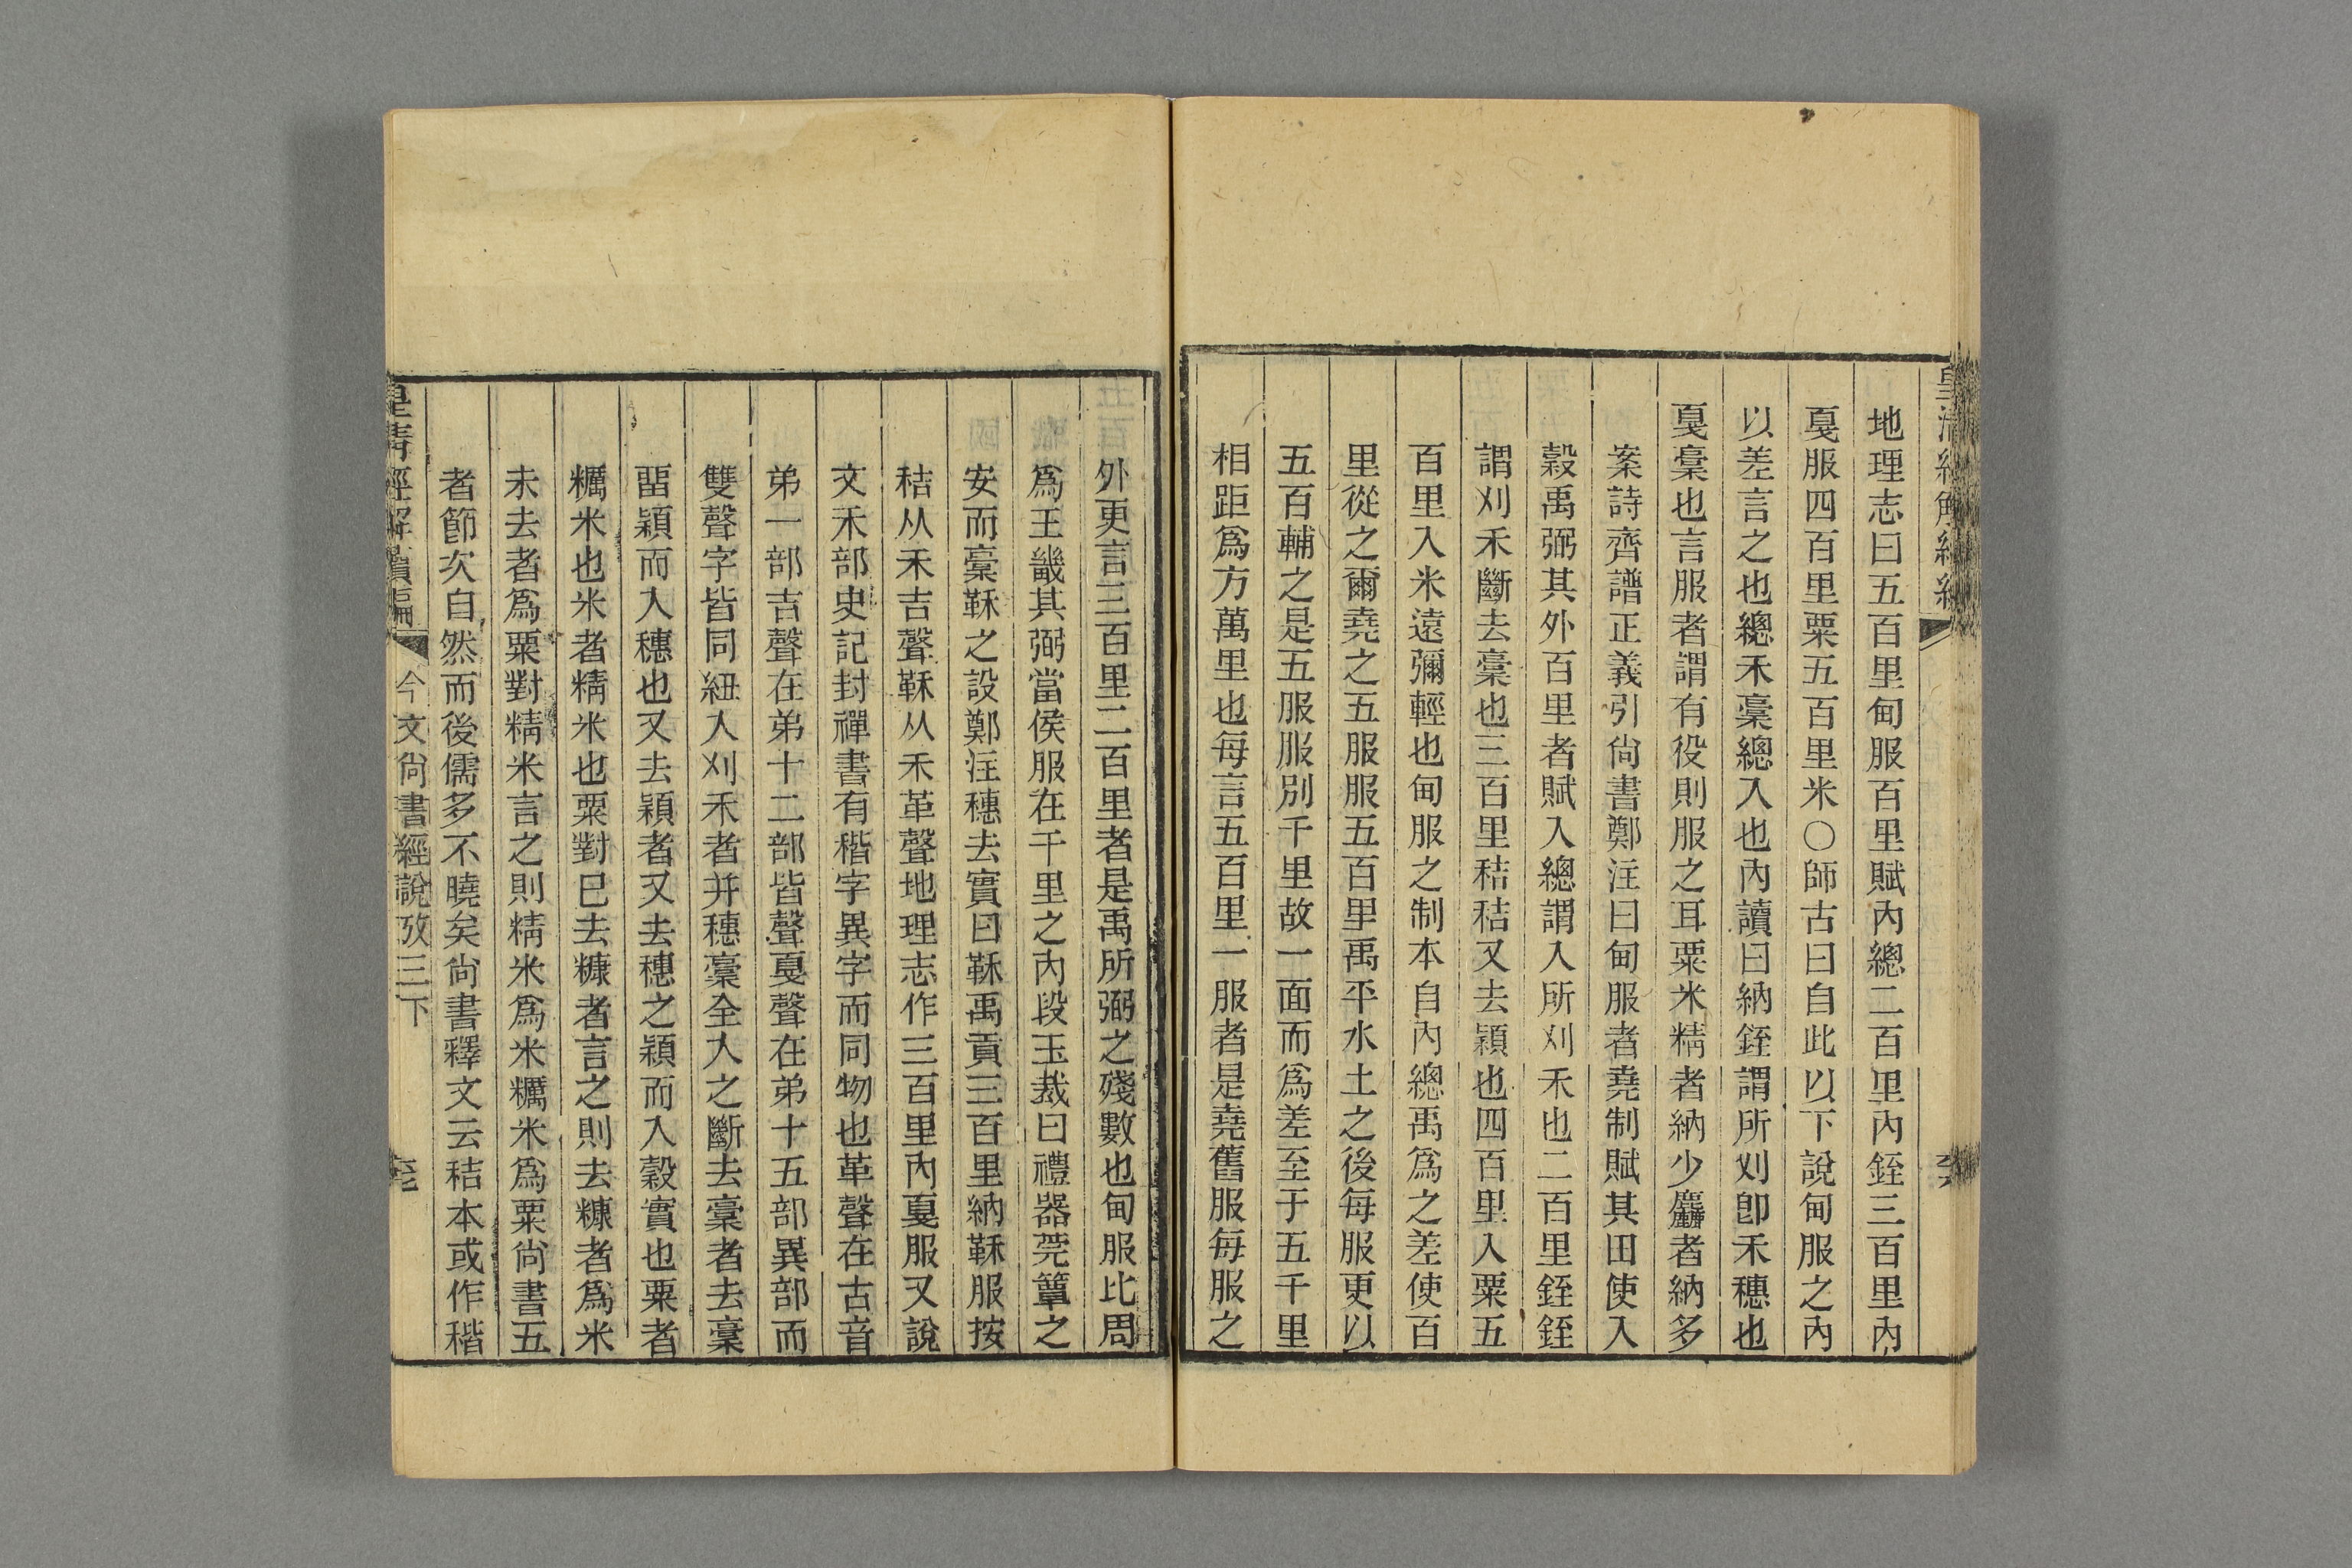 地理志曰五百里甸服百里賦內總二百里內銍三百里內
戛服四百里粟五百里米○師古曰自此以下說甸服之內
以差言之也總禾稾總入也內讀曰納銍謂所刈即禾穗也
戛稾也言服者謂有役則服之耳粟米精者納少麤者納多
案詩齊譜正義引尙書鄭注曰甸服者堯制賦其田使入
穀禹弼其外百里者賦入總謂入所刈禾也二百里銍銍
謂刈禾斷去稾也三百里秸秸又去穎也四百里入粟五
百里入米遠彌輕也甸服之制本自內總禹爲之差使百
里從之爾堯之五服服五百里禹平水土之後每服更以
五百輔之是五服服別千里故一面而爲差至于五千里
相距爲方萬里也每言五百里一服者是堯舊服每服之
外更言三百里二百里者是禹所弼之殘數也甸服比周
爲王畿其弼當侯服在千里之內段玉裁曰禮器莞簟之
安而稾鞂之設鄭注穗去實曰鞂禹貢三百里納鞂服按
秸从禾吉聲鞂从禾革聲地理志作三百里內戛服又說
文禾部史記封禪書有稭字異字而同物也革聲在古音
弟一部吉聲在弟十二部皆聲戛聲在弟十五部異部而
雙聲字皆同紐人刈禾者并穗稾全入之斷去稾者去稾
畱穎而入穗也又去穎者又去穗之穎而入穀實也粟者
糲米也米者精米也粟對已去糠者言之則去糠者爲米
未去者爲粟對精米言之則精米爲米糲米爲粟尙書五
者節次自然而後儒多不曉矣尙書釋文云秸本或作稭
皇清經解續編 今文尙書經說攷三下